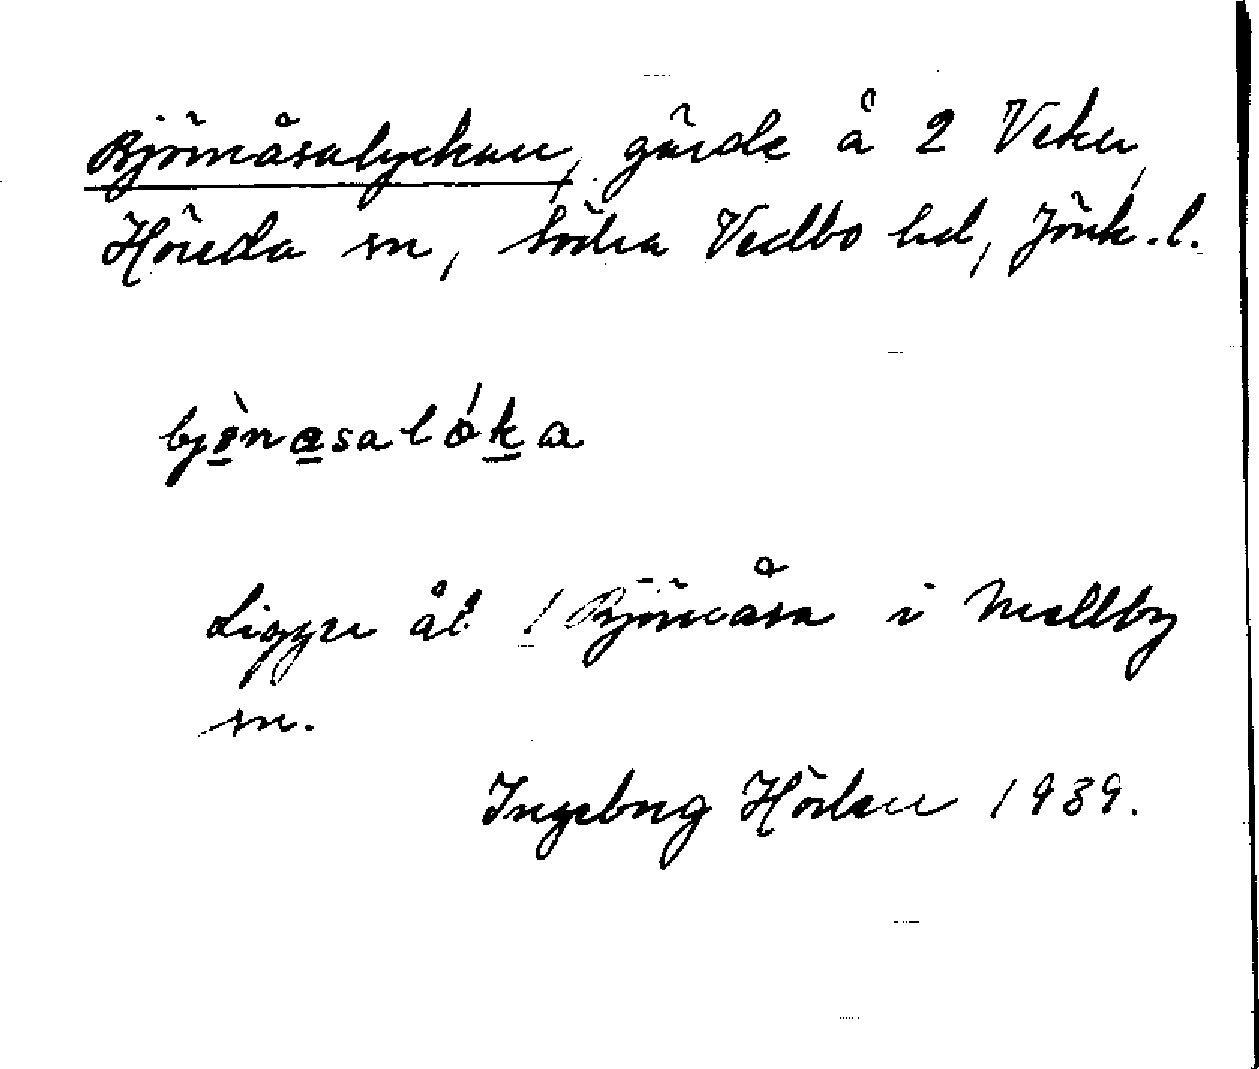 Björnåsalyckan, gärde å 2 Veker,
Höreda sn, Södra Vedbo hd, Jönk. l.
bjönasalóka
Ligger åt / Björnåsa i Mellby
sn.
Ingeborg Hörlen 1939.